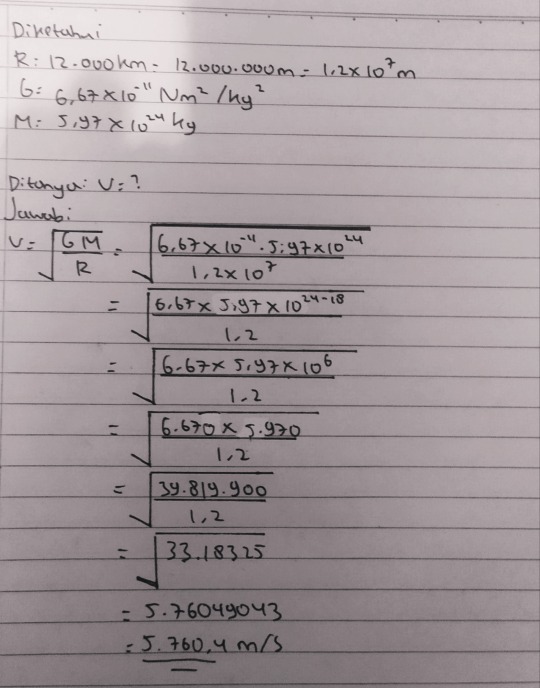 Diketahui
R: 12.000 km = 12.000.000m = 1,2 x 10⁷ m
G: 6,67 x 10⁻¹¹ Nm² / kg²
M: 5,97 x 10²⁴ kg
Ditanya: V = ?
Jawab:
V = √(GM / R) = √(6,67 x 10⁻¹¹ . 5,97 x 10²⁴ / 1,2 x 10⁷)
= √(6,67 x 5,97 x 10²⁴⁻¹⁸ / 1,2)
= √(6.67 x 5,97 x 10⁶ / 1,2)
= √(6.670 x 5.970 / 1,2)
= √(39.819.900 / 1,2)
= √33.18325
= 5.76049043
= 5.760,4 m/s